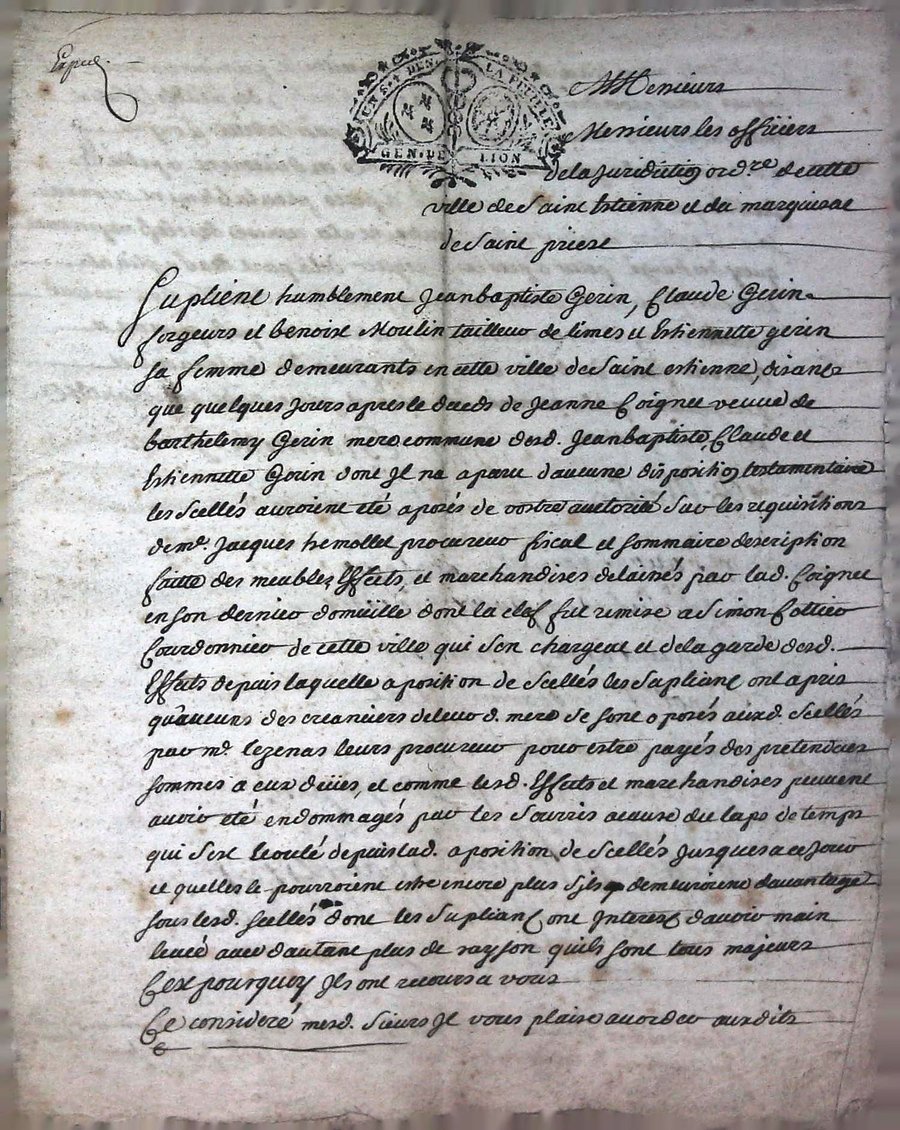 UN S. 4 DEN. LA FEUILLE
GEN. DE LION
A Messieurs
Messieurs les officiers
de la Juridiction ord.re de cette
ville de Saint Estienne et du marquisat
de Saint priest
Suplient humblement Jean baptiste Gerin, Claude Gerin
forgeurs et benoist Moulin tailleur de limes et Estiennette gerin
sa femme demeurants en cette ville de Saint estienne, disant
que quelques Jours apres le deceds de Jeanne Coignet veuve de
barthelemy Gerin mere commune desd. Jean baptiste, Claude et
Estiennette Gerin dont Il na aparu daucune disposition testamentaire
les Scellés auroient été aposés de vostre auctorité Sur les requisitions
de me. Jacques hemollet procureur fiscal et sommaire description
faitte des meubles, Effects, et marchandises delaissés par lad. Coignet
en son dernier domicille dont la clef fut remise a Simon Collier
Courdonnier de cette ville qui Sen chargeat et de la garde desd.
Effects depuis laquelle aposition de Scellés les Supliants ont apris
quaucuns des creanciers de leur d. mere se sont oposés auxd. Scellés
par me. Lezenas leurs procureur pour estre payés des pretendues
sommes a eux düies, et comme lesd. Effects et marchandises peuvent
avoir été endommagés par les Sourris a cause du laps de temps
qui Sest Ecoulé depuis lad. aposition de Scellés Jusques a ce Jour
et quelles le pourroient estre encore plus Sils demeuroient davantage
sous lesd. scellés dont les Supliants ont Interest davoir main
levée avec dautant plus de rayson quils sont tous majeurs
Cest pourquoy Ils ont recours a vous
Ce consideré mesd. Sieurs Il vous plaise accorder auxdits